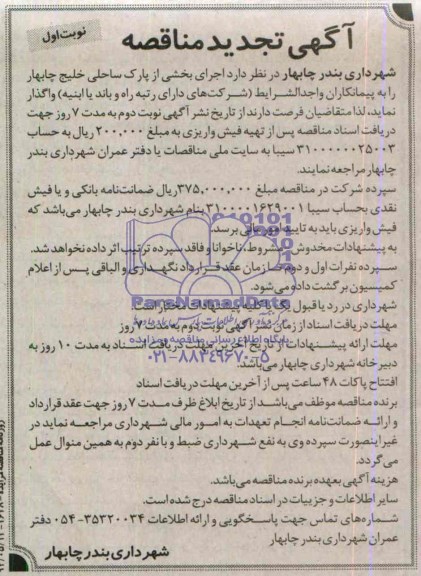 نوبت اول
آگهی تجدید مناقصه
شهرداری بندر چابهار در نظر دارد اجرای بخشی از پارک ساحلی خلیج چابهار
را به پیمانکاران واجدالشرایط (شرکت‌های دارای رتبه راه و باند یا ابنیه) واگذار
نماید، لذا متقاضیان فرصت دارند از تاریخ نشر آگهی نوبت دوم به مدت ۷ روز جهت
دریافت اسناد مناقصه پس از تهیه فیش واریزی به مبلغ ۲۰۰,۰۰۰ ریال به حساب
سیبا به سایت ملی مناقصات یا دفتر عمران شهرداری بندر
چابهار مراجعه نمایند.
سپرده شرکت در مناقصه مبلغ ۳۷۵,۰۰۰,۰۰۰ ریال ضمانت‌نامه بانکی و یا فیش
نقدی بحساب سیبا بنام شهرداری بندر چابهار می‌باشد که
فیش واریزی باید به تایید امور مالی برسد.
به پیشنهادات مخدوش، مشروط، ناخوانا و فاقد سپرده ترتیب اثر داده نخواهد شد.
سپرده نفرات اول و دوم تا زمان عقد قرارداد نگهداری و الباقی پس از اعلام
کمیسیون برگشت داده می‌شود.
شهرداری در رد یا قبول یک یا کلیه پیشنهادات مختار است
مهلت دریافت اسناد از زمان نشر آگهی نوبت دوم به مدت ۷ روز
مهلت ارائه پیشنهادات از تاریخ آخرین مهلت دریافت اسناد به مدت ۱۰ روز به
دبیرخانه شهرداری چابهار می‌باشد.
افتتاح پاکات ۴۸ ساعت پس از آخرین مهلت دریافت اسناد
برنده مناقصه موظف می‌باشد از تاریخ ابلاغ ظرف مدت ۷ روز جهت عقد قرارداد
و ارائه ضمانت‌نامه انجام تعهدات به امور مالی شهرداری مراجعه نماید در
غیر اینصورت سپرده وی به نفع شهرداری ضبط و با نفر دوم به همین منوال عمل
می‌گردد.
هزینه آگهی بعهده برنده مناقصه می‌باشد.
سایر اطلاعات و جزییات در اسناد مناقصه درج شده است.
شماره‌های تماس جهت پاسخگویی و ارائه اطلاعات ۳۵۳۲۰۰۳۴-۰۵۴ دفتر
عمران شهرداری بندر چابهار
شهرداری بندر چابهار
ParsNamadData
پایگاه اطلاع رسانی مناقصه و مزایده
۰۲۱-۸۸۳۴۹۶۷۰-۵